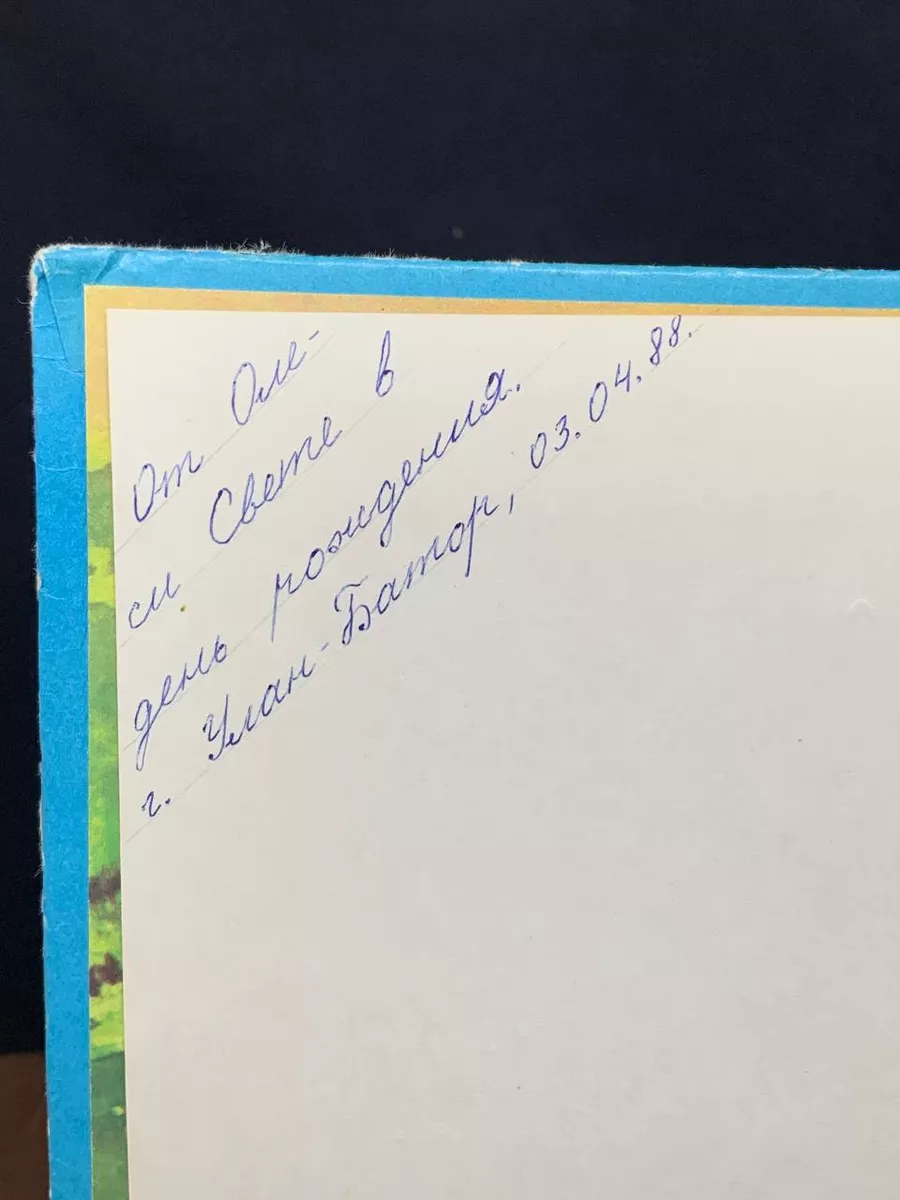 От Оле-
си Свете в
день рождения.
г. Улан-Батор, 03.04.88.